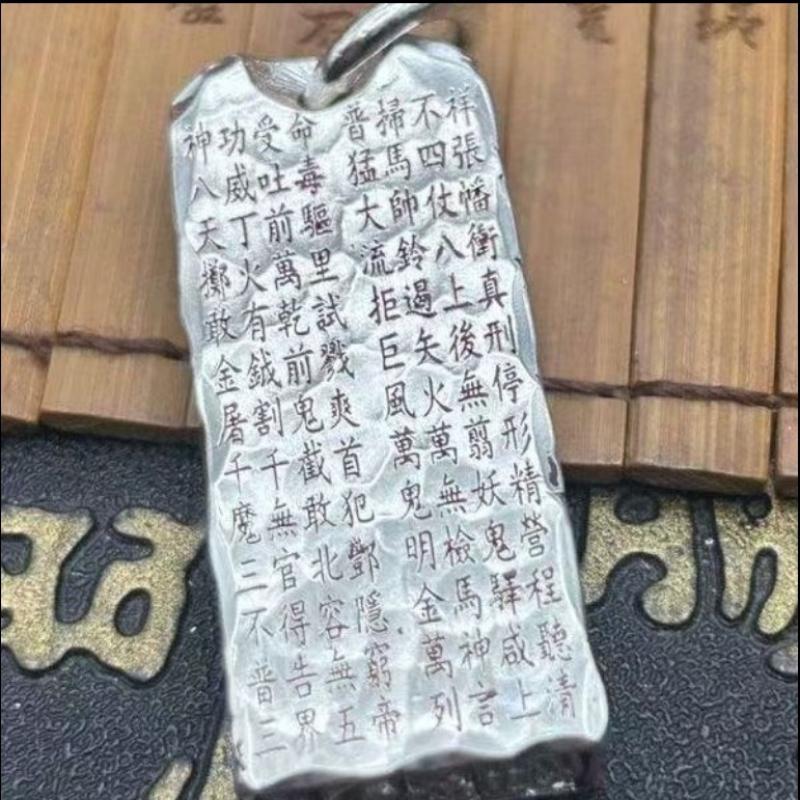 神功受命 普掃不祥
八威吐毒 猛馬四張
天丁前驅 大帥仗幡
擲火萬里 流鈴八衝
敢有乾試 拒遏上真
金鉞前戮 巨矢後刑
屠割鬼爽 風火無停
千千截首 萬萬翦形
魔無敢犯 鬼無妖精
三官北酆 明檢鬼營
不得容隱 金馬驛程
普告無窮 萬神咸聽
三界五帝 列言上清